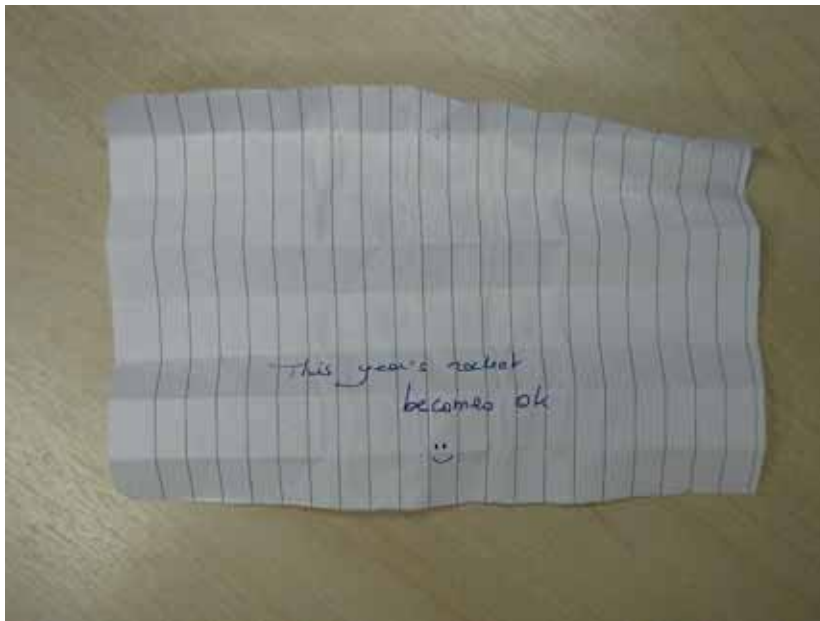 This year's rocket
becomes ok